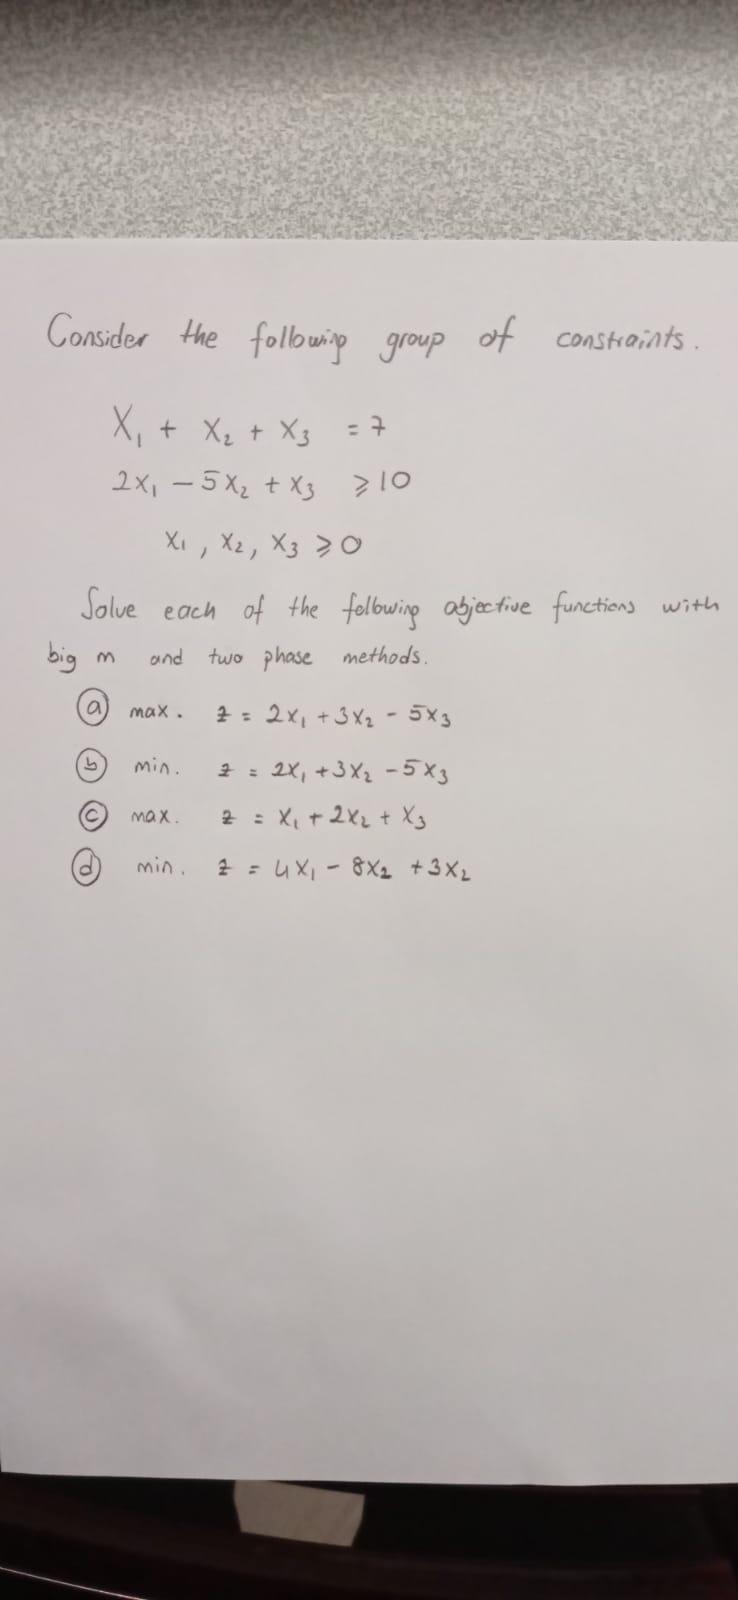 Consider the following group of constraints.
X₁ + X₂ + X₃ = 7
2X₁ - 5X₂ + X₃ ⩾ 10
X₁, X₂, X₃ ⩾ 0
Solve each of the following objective functions with
big m and two phase methods.
ⓐ max. z = 2X₁ + 3X₂ - 5X₃
ⓑ min. z = 2X₁ + 3X₂ - 5X₃
ⓒ max. z = X₁ + 2X₂ + X₃
ⓓ min. z = 4X₁ - 8X₂ + 3X₂